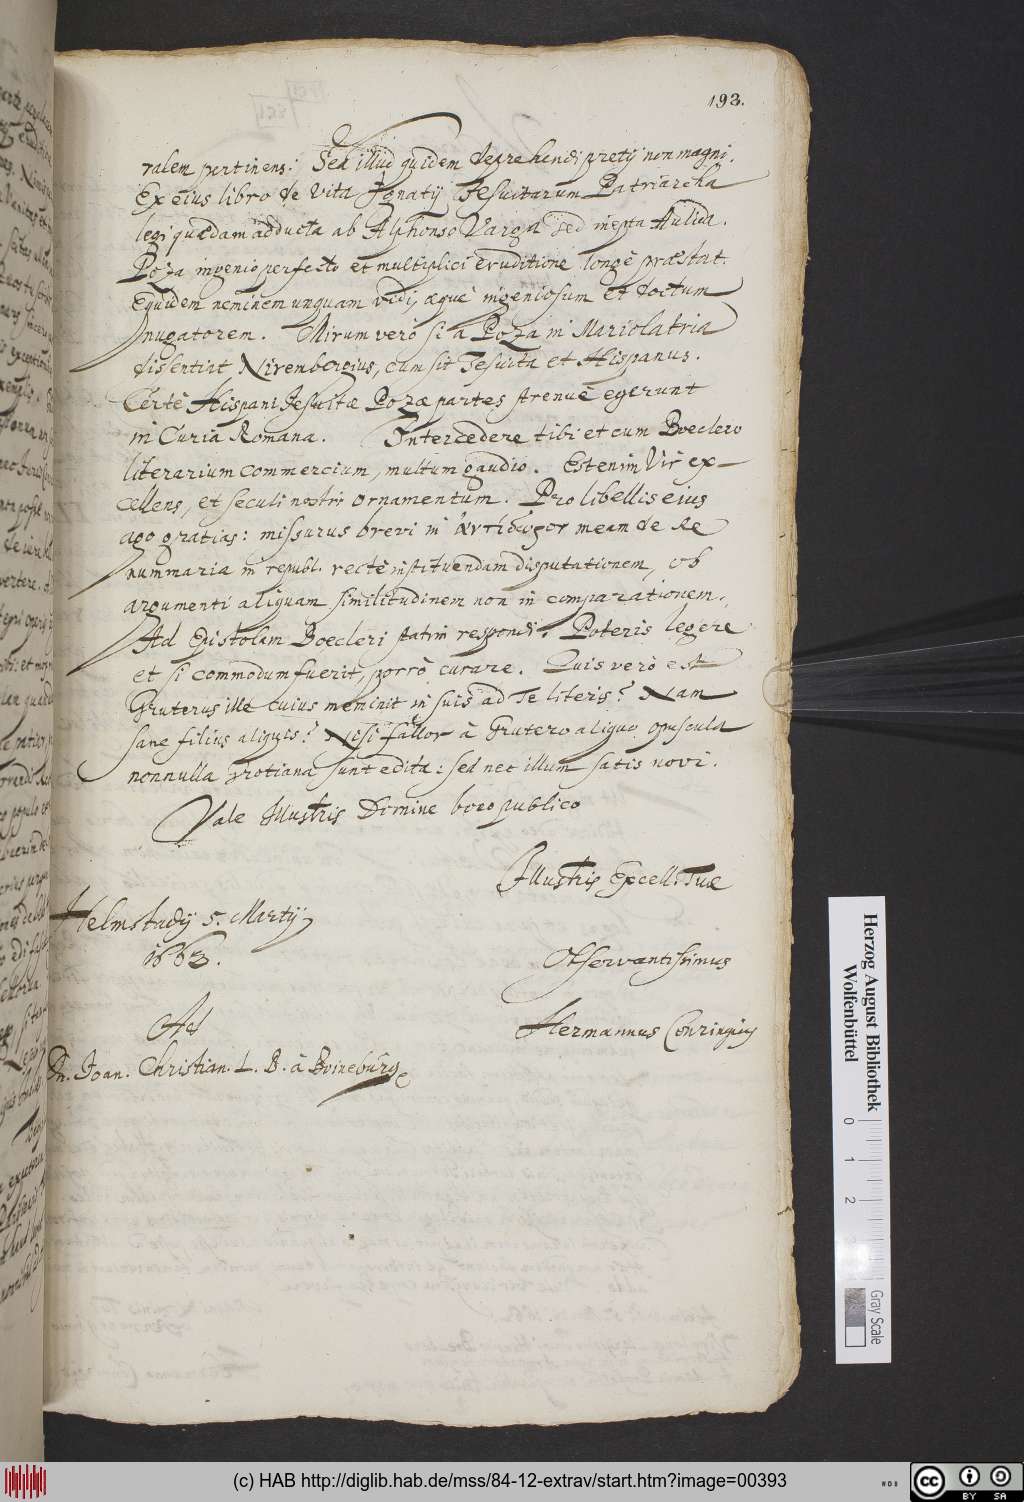 193.
ralem pertinens: Sed illud quidem deprehendi pretij non magni.
Ex eius libro de Vita Ignatij Jesuitarum Patriarcha
legi quædam adducta ab Alphonso Varga sed inepta
Poza ingenio perfecto et multiplici eruditione longè præstat.
Equidem neminem unquam vidi, æquè ingeniosum et doctum
nugatorem. Mirum verò si a Poza in Mariolatria
dissentiat Nirembergius, cum sit Jesuita et Hispanus.
Certè Hispani Jesuitæ Pozæ partes strenuè egerunt
in Curia Romana. Intercedere tibi et cum Boeclero
literarium commercium, multum gaudio. Est enim Vir ex-
cellens, et seculi nostri ornamentum. Pro libellis eius
ago gratias: missurus brevi in ἀντίδωρον meam de Re
nummaria in republ. rectè instituendam disputationem, ob
argumenti aliquam similitudinem non in comparationem.
Ad Epistolam Boecleri statim respondi. Poteris legere
et si commodum fuerit, porrò curare. Quis verò est
Gruterus ille cuius meminit in suis ad Te literis? Nam
sane filius aliquis? Nisi fallor à Grutero aliquo opuscula
nonnulla Grotiana sunt edita: sed nec illum satis novi.
Vale Illustris Domine bono publico
Illustris Excell. Tuæ
Helmstadij 5. Martij
1663.
Observantissimus
Ad
Hermannus Conringius
Dn. Joan. Christian. L. B. à Boineburg
Herzog August Bibliothek
Wolfenbüttel
0 1 2
Gray Scale
(c) HAB http://diglib.hab.de/mss/84-12-extrav/start.htm?image=00393
cc BY SA